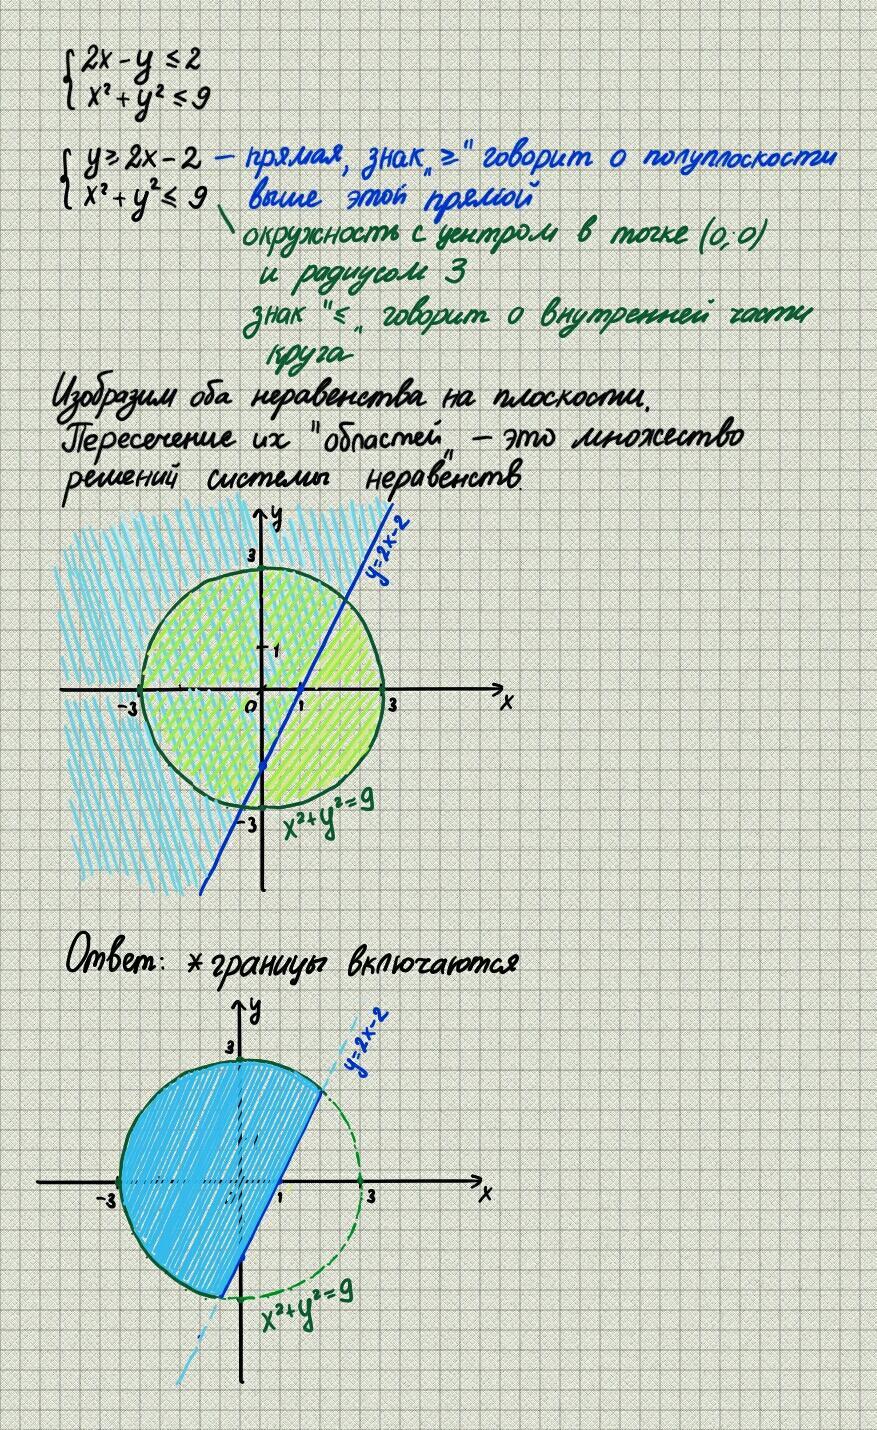 2x - y ≤ 2
x² + y² ≤ 9
y ≥ 2x - 2 — прямая, знак „≥" говорит о полуплоскости
x² + y² ≤ 9 выше этой прямой
окружность с центром в точке (0; 0)
и радиусом 3
знак "≤„ говорит о внутренней части
круга
Изобразим оба неравенства на плоскости.
Пересечение их "областей„ — это множество
решений системы неравенств.
y
y=2x-2
3
1
-3
0
1
3
x
-3
x²+y²=9
Ответ: * границы включаются
y
y=2x-2
3
-3
0
1
3
x
x²+y²=9